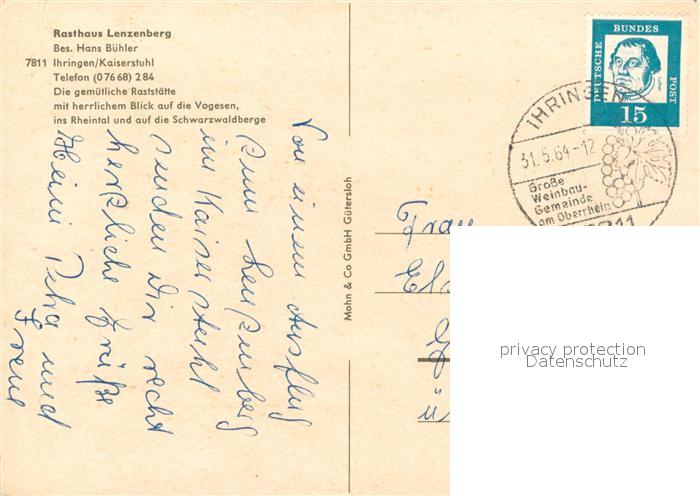 Rasthaus Lenzenberg
Bes. Hans Bühler
7811 Ihringen/Kaiserstuhl
Telefon (07668) 284
Die gemütliche Raststätte
mit herrlichem Blick auf die Vogesen,
ins Rheintal und auf die Schwarzwaldberge
Von einem Ausflug
zum Lenzenberg
im Kaiserstuhl
senden Dir recht
herzliche Grüße
Heini Petra und
Irene
Mohn & Co GmbH Gütersloh
DEUTSCHE BUNDES POST
Luther
15
IHRINGEN
31.5.64-12
Große
Weinbau-
Gemeinde
am Oberrhein
7811
Frau
privacy protection
Datenschutz